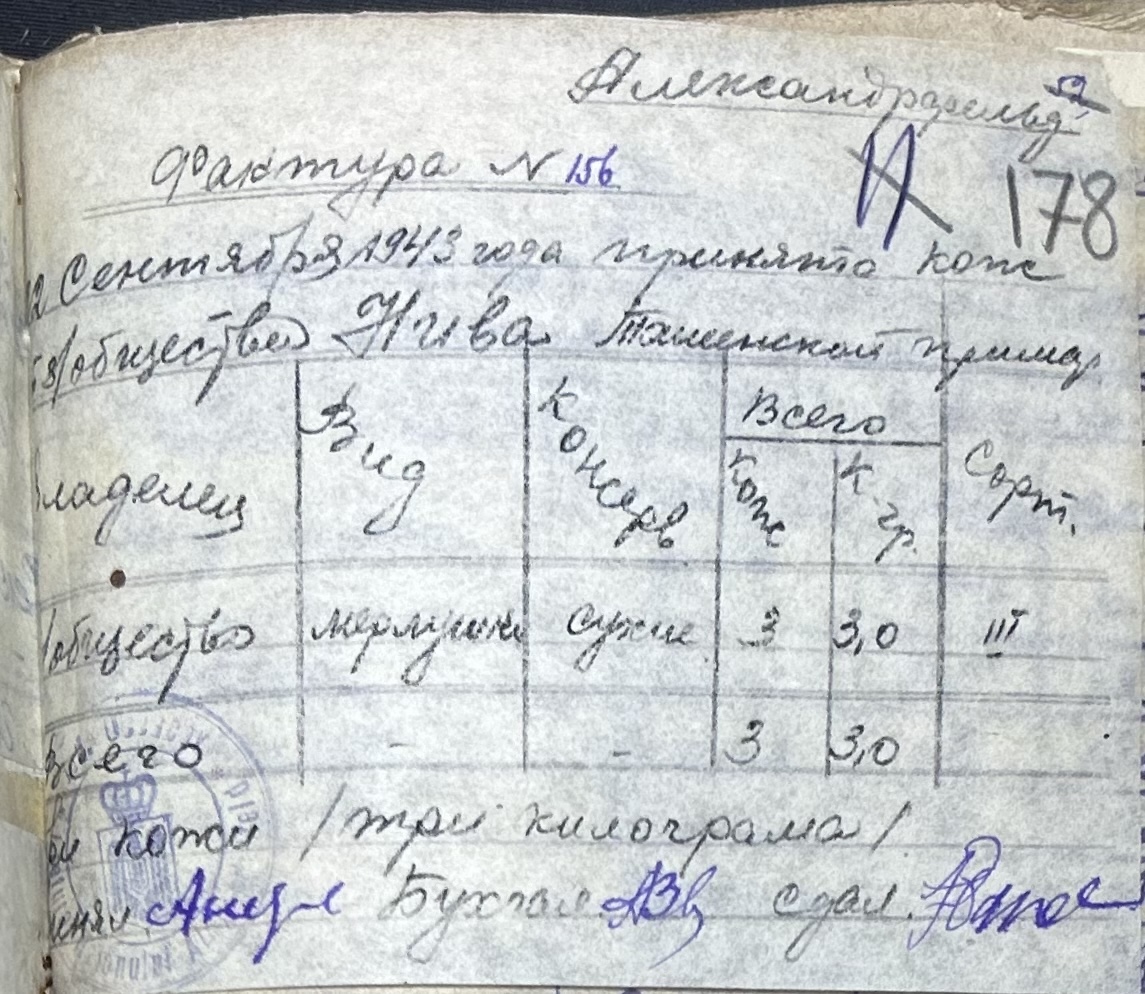 52
Александрфельд
Фактура N 156
178
2 Сентября 1943 года принято кож
общества Нива Ташенской примар
Владелец Вид Консерв Всего Сорт.
Кож К-гр.
общество мерлушки сухие 3 3,0 III
Всего - - 3 3,0
кожи /три килограма/
Бухгал. сдал.